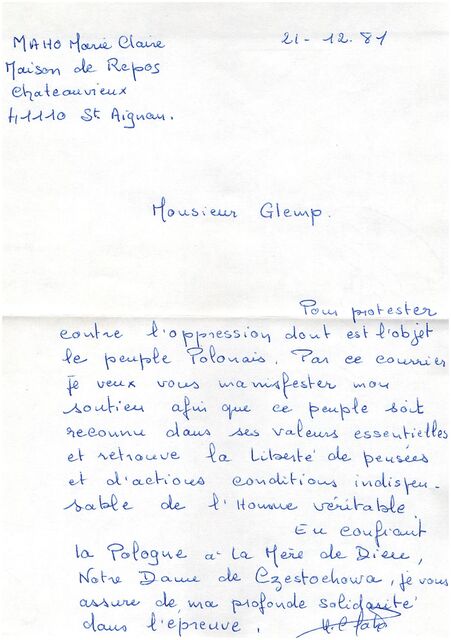 MAHO Marie Claire
21-12.81
Maison de Repos
Chateauvieux
41110 St Aignan.
Monsieur Glemp.
Pour protester
contre l'oppression dont est l'objet
le peuple Polonais. Par ce courrier
je veux vous manisfester mon
soutien afin que ce peuple soit
reconnu dans ses valeurs essentielles
et retrouve la liberté de pensées
et d'actions conditions indispen-
sable de l'Homme véritable.
En confiant
la Pologne à la Mère de Dieu,
Notre Dame de Czestochowa, je vous
assure de ma profonde solidarité
dans l'épreuve.